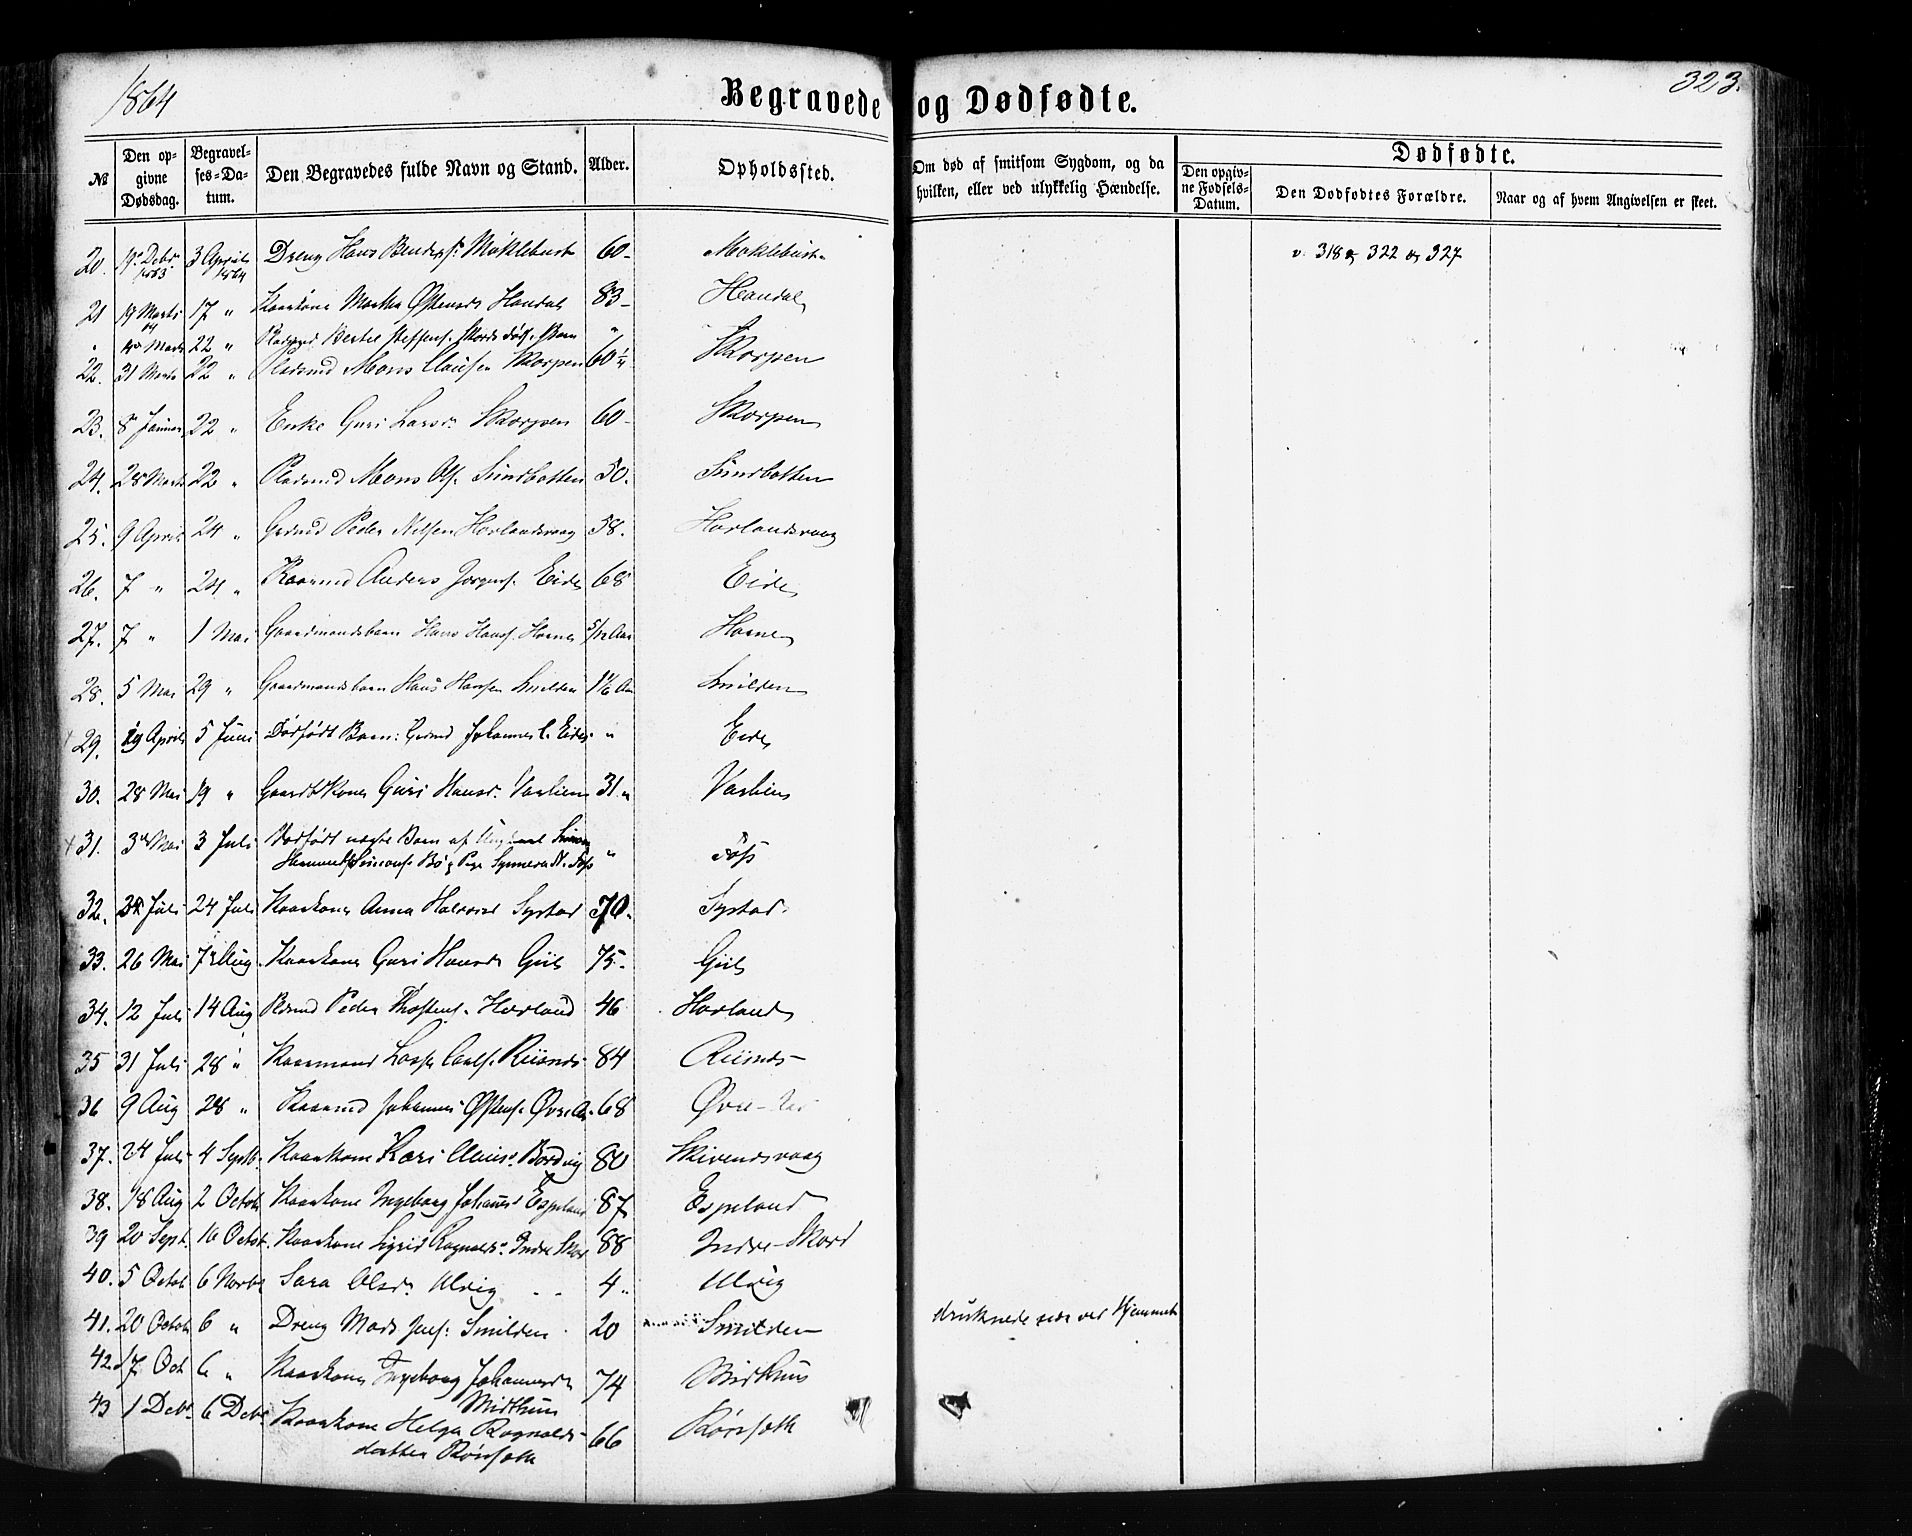 1864
Begravede og Dødfødte.
323.
№
Den opgivne Dødsdag.
Begravelses-Datum.
Den Begravedes fulde Navn og Stand.
Alder.
Opholdssted.
Om død af smitsom Sygdom, og da hvilken, eller ved ulykkelig Hændelse.
Dødfødte.
Den opgivne Fødsels-Datum.
Den Dødfødtes Forældre.
Naar og af hvem Angivelsen er skeet.
20. 19 Debr 1863. 3 April 1864 Dreng Hans Bendixs. Möklebust 60 - Moklebust v. 318 og 322 og 327
21 19 Marts 17 " Kaarkone Martha Østensd. Haudal 83 - Haudal
" Marts 22 " Bertel Steffens. Skords Barn "
22. 31 Marts 22 " Pladsmd Mons Clausen Skorpen 60 1/4 Skorpen
23. 8 Januar 22 " Enke Guri Larsd. Skorpen 60 - Skorpen
24. 28 Marts 22 " Pladsmd Mons Ols. Sundbotten 50. Sundbotten
25. 9 April 24 " Grdmd Peder Nilsen Horlandsvaag 58. Horlandsvaag
26. 7 " 24 " Kaarmd Anders Jørgens. Eide 68 Eide
27. 7 " 1 Mai Gaardmandsbarn Hans Hans. Horne 5/12 Aar Horne
28. 5 Mai 29 " Gaardmandsbarn Hans Hansen Smilden 1 1/6 Aar Smilden
+ 29. 29 April 5 Juni Dødfødt Barn: Grdmd Johannes Eides " Eide
30. 28 Mai 19 " Gaardkone Guri Hansd. Varlien 31 " Varlien
+ 31. 3 Mai 3 Juli Dødfødt uægte Barn af
Simons. Bø og Pige Synneva N. Foss " Foss
32. Juli 24 Juli Kaarkone Anna Halvorsd Systad 70. Systad
33. 26 Mai 7 Aug. Kaarkone Guri Hansd. Giil 75. Giil
34. 12 Juli 14 Aug Peder Thostens. Horland 46 Horland
35 31 Juli 28 " Kaarmand Lasse Carls. Risnes 84 Risnes
36 9 Aug 28 " Kaarmd Johannes Østens. Øvre 68 Øvre
37. 24 Juli 4 Septb. Kaarkone Kari Clausd. Bordvig 80 Skivensvaag
38. 18 Aug 2 Octob Kaarkone Ingeborg Johansd Espeland 87 Espeland
39 20 Sept. 16 Octob. Kaarkone Sigrid Ragnalds. Indre Skor 88 Indre-Skord
40. 5 Octob 6 Novbr Sara Olsd. Ulvig - - 4 " Ulvig
41. 20 Octob 6 " Dreng Mads Jens. Smilden 20 Smilden druknede ved Hjemmet
42. 17 Oct 6 " Kaarkone Ingeborg Johannesd.
Midthun 74 Midthun
43 1 Debr 6 Debr Kaarkone Helga Ragnalds-
datter Rönseth 66 Rönseth